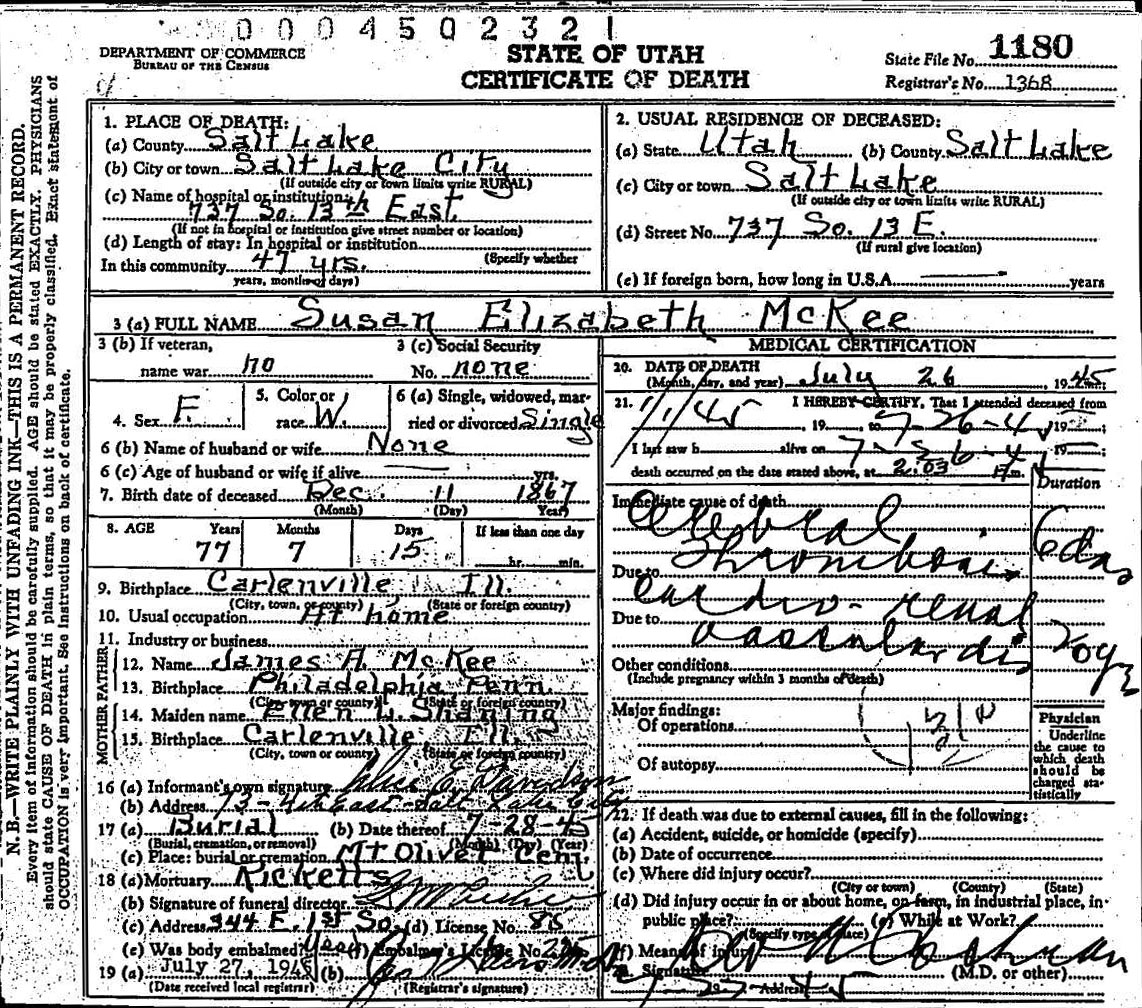 0004502321
DEPARTMENT OF COMMERCE
BUREAU OF THE CENSUS
STATE OF UTAH
CERTIFICATE OF DEATH
State File No. 1180
Registrar's No. 1368
N. B.—WRITE PLAINLY WITH UNFADING INK—THIS IS A PERMANENT RECORD.
Every item of information should be carefully supplied. AGE should be stated EXACTLY. PHYSICIANS
should state CAUSE OF DEATH in plain terms, so that it may be properly classified. Exact statement of
OCCUPATION is very important. See instructions on back of certificate.
1. PLACE OF DEATH:
(a) County Salt Lake
(b) City or town Salt Lake City
(If outside city or town limits write RURAL)
(c) Name of hospital or institution:
737 So. 13th East
(If not in hospital or institution give street number or location)
(d) Length of stay: In hospital or institution
(Specify whether
In this community 47 yrs.
years, months or days)
2. USUAL RESIDENCE OF DECEASED:
(a) State Utah (b) County Salt Lake
(c) City or town Salt Lake
(If outside city or town limits write RURAL)
(d) Street No. 737 So. 13 E.
(If rural give location)
(e) If foreign born, how long in U.S.A. years
3 (a) FULL NAME Susan Elizabeth McKee
3 (b) If veteran,
name war no
3 (c) Social Security
No. none
4. Sex F.
5. Color or
race W.
6 (a) Single, widowed, mar-
ried or divorced Single
6 (b) Name of husband or wife None
6 (c) Age of husband or wife if alive yrs.
7. Birth date of deceased Dec. 11 1867
(Month) (Day) Year
8. AGE Years Months Days If less than one day
77 7 15 hr. min.
9. Birthplace Carlenville Ill.
(City, town, or county) (State or foreign country)
10. Usual occupation At home
11. Industry or business
FATHER
12. Name James A. McKee
13. Birthplace Philadelphia Penn.
(City town or county) (State or foreign country)
MOTHER
14. Maiden name Ellen L. Shaning
15. Birthplace Carlenville Ill.
(City, town or county) (State or foreign country)
16 (a) Informant's own signature
(b) Address East Salt Lake City
17 (a) Burial (b) Date thereof 7-28-45
(Burial, cremation, or removal) (Month) (Day) (Year)
(c) Place: burial or cremation Mt Olivet Cem.
18 (a) Mortuary Ricketts
(b) Signature of funeral director
(c) Address 344 E. 1st So. (d) License No. 85
(e) Was body embalmed? yes (f) Embalmer's License No.
19 (a) July 27, 1945 (b)
(Date received local registrar) (Registrar's signature)
MEDICAL CERTIFICATION
20. DATE OF DEATH
(Month, day, and year) July 26, 1945
21. I HEREBY CERTIFY, That I attended deceased from
1/1/45, 19 , to 7-26-45 19 ;
I last saw h alive on 7-26-45 19 ;
death occurred on the date stated above, at 2:03 m.
Duration
Immediate cause of death
Cerebral
Thrombosis 6 das
Due to
Cardio-renal
Due to
vascular dis
Other conditions
(Include pregnancy within 3 months of death)
Major findings:
Of operations
Of autopsy
Physician
Underline
the cause to
which death
should be
charged sta-
tistically
22. If death was due to external causes, fill in the following:
(a) Accident, suicide, or homicide (specify)
(b) Date of occurrence
(c) Where did injury occur?
(City or town) (County) (State)
(d) Did injury occur in or about home, on farm, in industrial place, in
public place? (e) While at Work?
(Specify type of place)
(f) Means of injury
Signature (M.D. or other)
Address